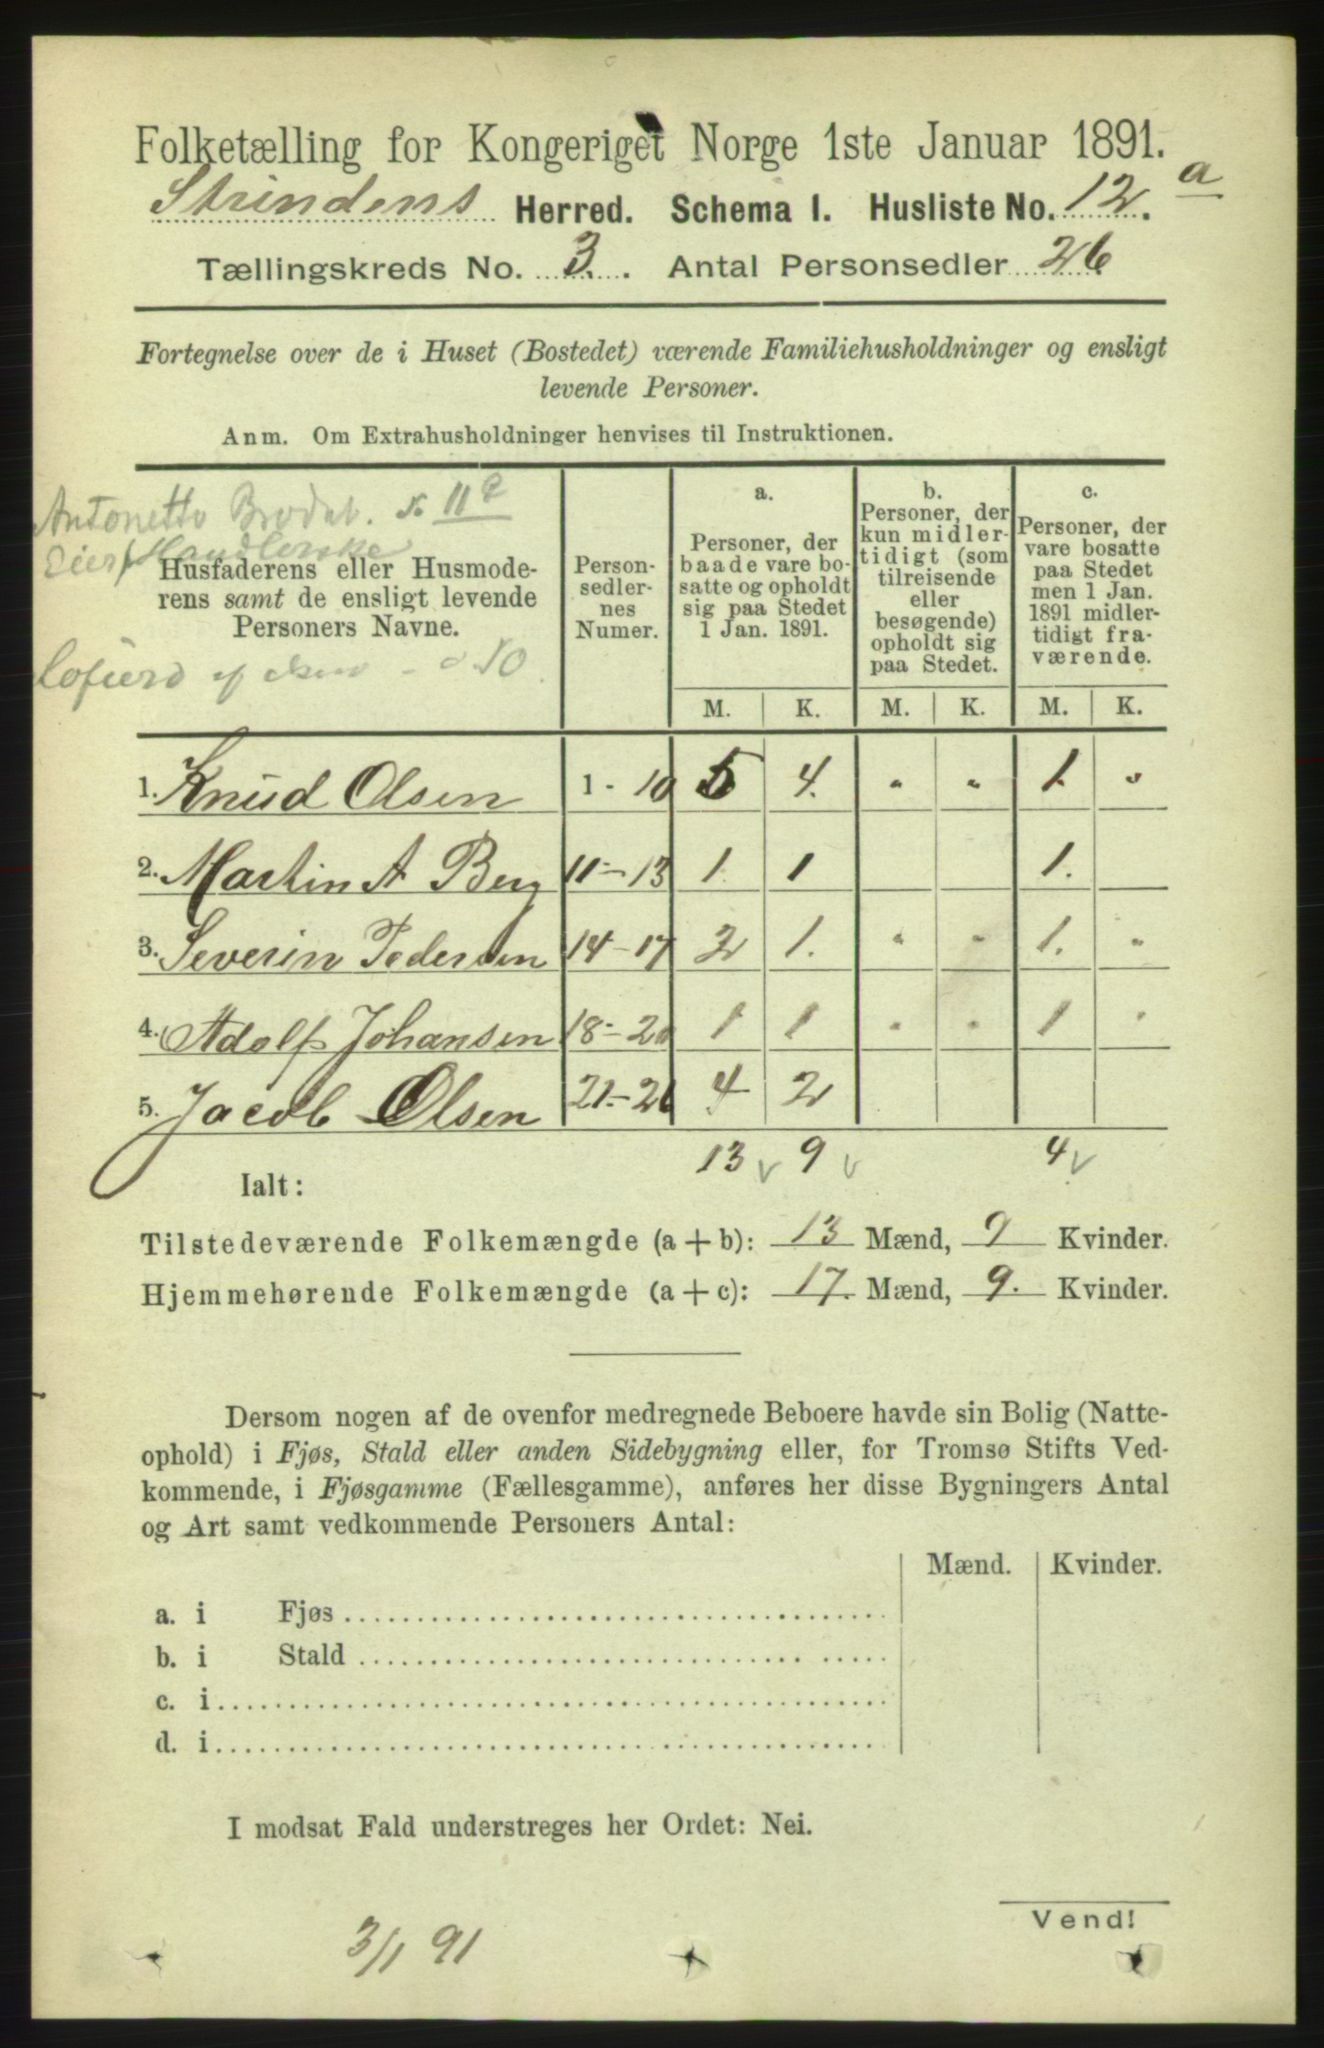 Folketælling for Kongeriget Norge 1ste Januar 1891.
Strindens Herred. Schema I. Husliste No. 12 a.
Tællingskreds No. 3. Antal Personsedler 26
Fortegnelse over de i Huset (Bostedet) værende Familiehusholdninger og ensligt
levende Personer.
Anm. Om Extrahusholdninger henvises til Instruktionen.
Antonette 11
Eier Handlerske
Husfaderens eller Husmode-
rens samt de ensligt levende
Personers Navne.
10
Person-
sedler-
nes
Numer.
a.
Personer, der
baade vare bo-
satte og opholdt
sig paa Stedet
1 Jan. 1891.
b.
Personer, der
kun midler-
tidigt (som
tilreisende
eller
besøgende)
opholdt sig
paa Stedet.
c.
Personer, der
vare bosatte
paa Stedet
men 1 Jan.
1891 midler-
tidigt fra-
værende.
M. K. M. K. M. K.
1. Knud Olsen 1 - 10 5 4. " " 1. "
2. Martin A Berg 11-13 1 1 1.
3. Severin Pedersen 14-17 2 1. " " 1. "
4. Adolf Johansen 18-20 1 1 " " 1 "
5. Jacob Olsen 21-26 4 2
13 v 9 v 4 v
Ialt:
Tilstedeværende Folkemængde (a + b): 13 Mænd, 9 Kvinder.
Hjemmehørende Folkemængde (a + c): 17. Mænd, 9. Kvinder.
Dersom nogen af de ovenfor medregnede Beboere havde sin Bolig (Natte-
ophold) i Fjøs, Stald eller anden Sidebygning eller, for Tromsø Stifts Ved-
kommende, i Fjøsgamme (Fællesgamme), anføres her disse Bygningers Antal
og Art samt vedkommende Personers Antal:
Mænd. Kvinder.
a. i Fjøs
b. i Stald
c. i
d. i
I modsat Fald understreges her Ordet: Nei.
Vend!
3/1 91